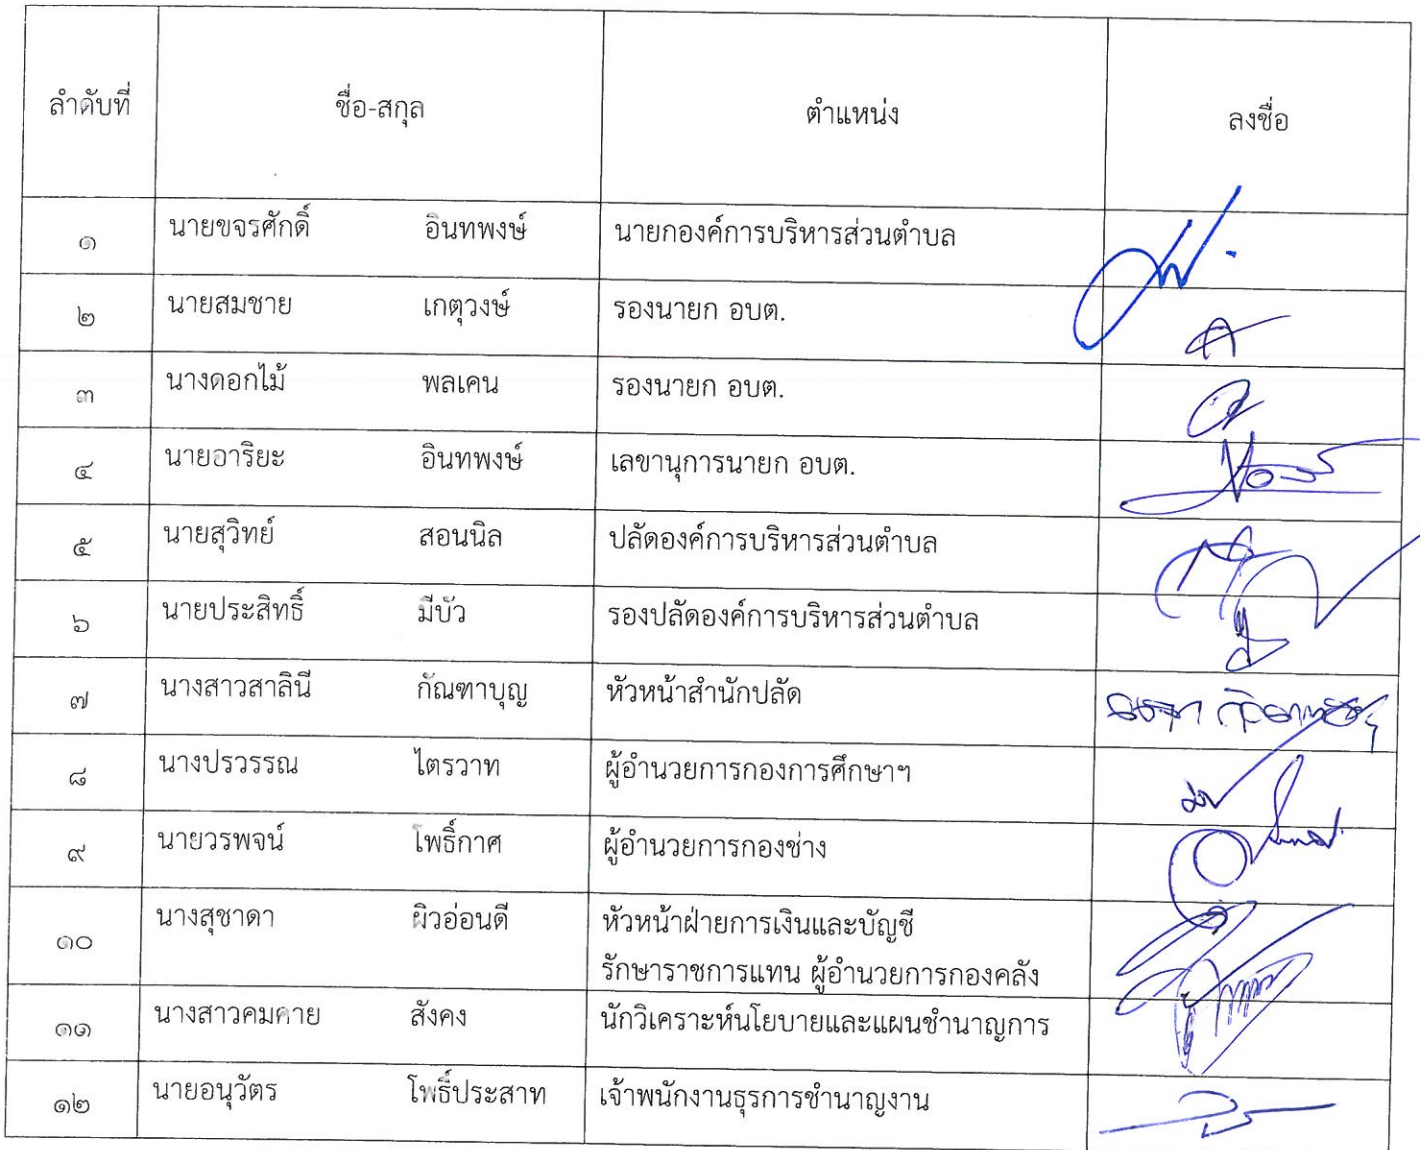 ลำดับที่ ชื่อ-สกุล ตำแหน่ง ลงชื่อ
๑ นายขจรศักดิ์ อินทพงษ์ นายกองค์การบริหารส่วนตำบล
๒ นายสมชาย เกตุวงษ์ รองนายก อบต.
๓ นางดอกไม้ พลเคน รองนายก อบต.
๔ นายอาริยะ อินทพงษ์ เลขานุการนายก อบต.
๕ นายสุวิทย์ สอนนิล ปลัดองค์การบริหารส่วนตำบล
๖ นายประสิทธิ์ มีบัว รองปลัดองค์การบริหารส่วนตำบล
๗ นางสาวสาลินี กัณฑาบุญ หัวหน้าสำนักปลัด
๘ นางปรวรรณ ไตรวาท ผู้อำนวยการกองการศึกษาฯ
๙ นายวรพจน์ โพธิ์กาศ ผู้อำนวยการกองช่าง
๑๐ นางสุชาดา ผิวอ่อนดี หัวหน้าฝ่ายการเงินและบัญชี
รักษาราชการแทน ผู้อำนวยการกองคลัง
๑๑ นางสาวคมคาย สังคง นักวิเคราะห์นโยบายและแผนชำนาญการ
๑๒ นายอนุวัตร โพธิ์ประสาท เจ้าพนักงานธุรการชำนาญงาน